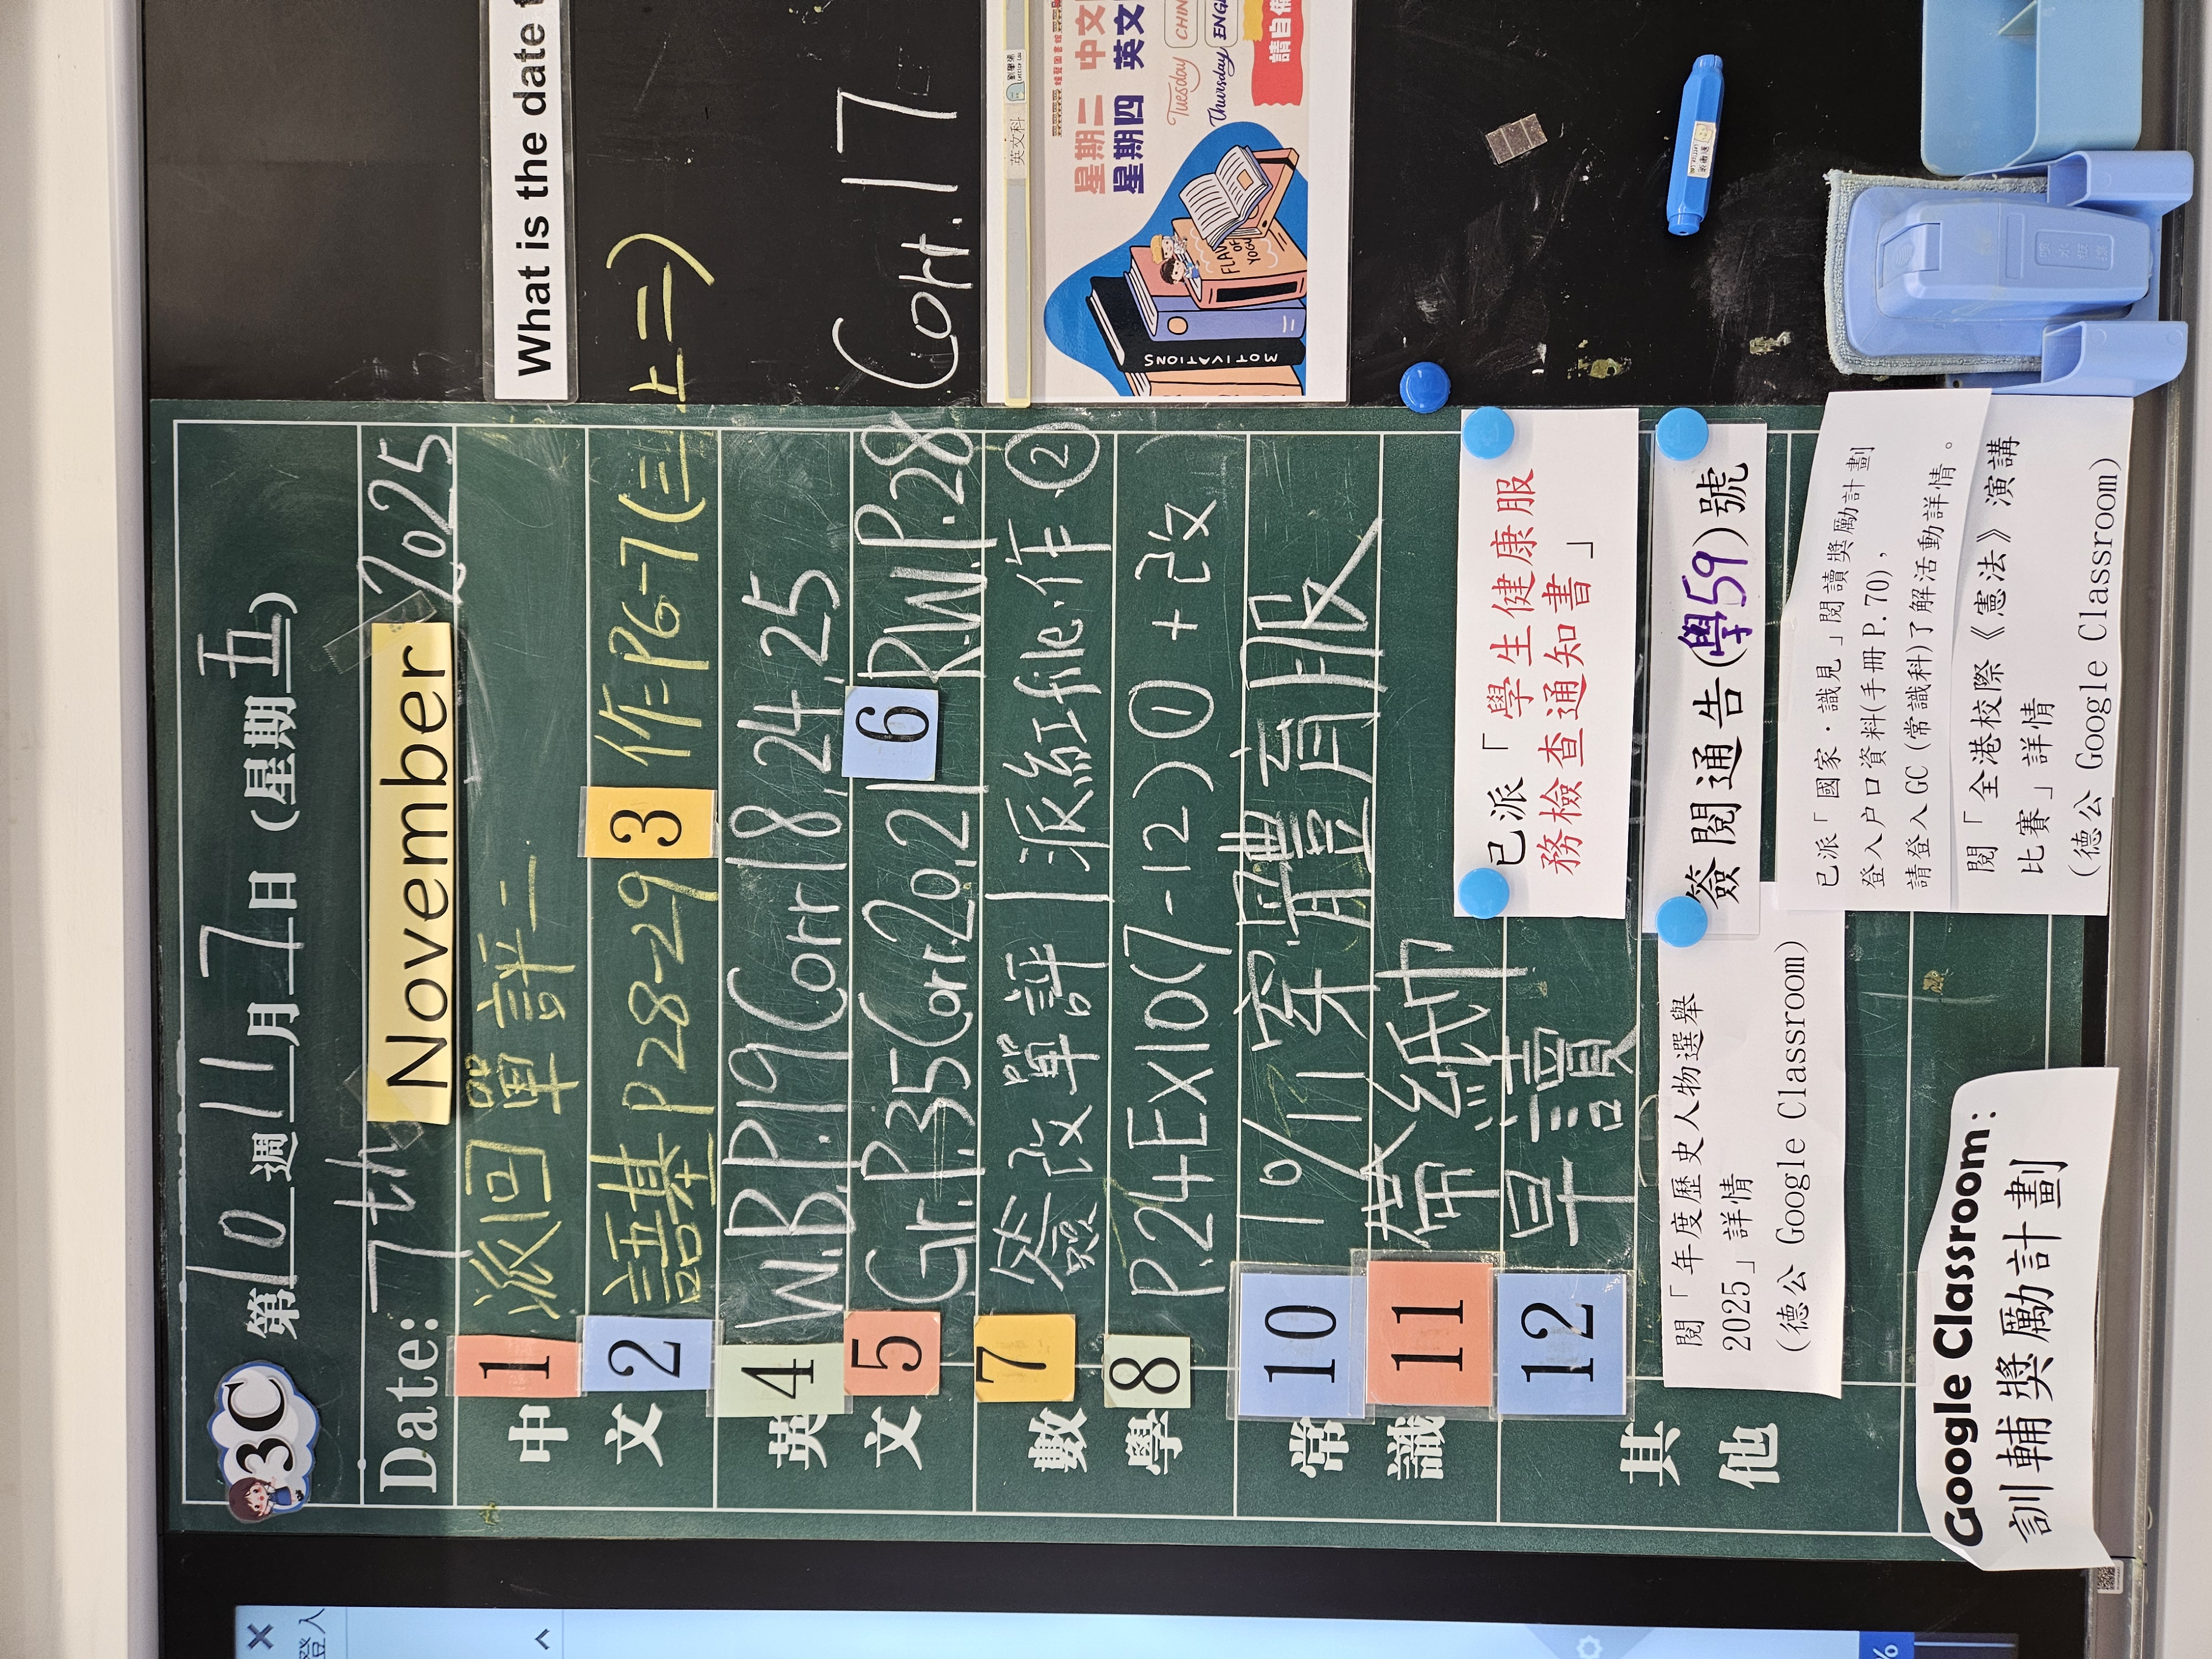 3C
第10週11月7日(星期五)
Date: 7th November 2025
中文
1 派回單評二
2 語基P28-29 3 作P6-7(三上二)
英文
4 W.B.P.19 Corr 18,24,25
5 Gr.P.35 Corr.20,21 6 R.W.P.28 Corr.17
數學
7 簽改單評1 派紅file,作②
8 P.24 EX10(7-12)① + 改
常識
10 10/11穿體育服
11 帶紙巾
其他
12 早讀
已派「學生健康服
務檢查通知書」
簽閱通告(學59)號
閱「年度歷史人物選舉
2025」詳情
(德公 Google Classroom)
已派「國家·識見」閱讀獎勵計劃
登入户口資料(手冊P.70),
請登入GC(常識科)了解活動詳情。
閱「全港校際《憲法》演講
比賽」詳情
(德公 Google Classroom)
Google Classroom:
訓輔獎勵計劃
What is the date
英文科
星期二 中文
星期四 英文
Tuesday CHIN
Thursday ENGL
請自備
MOTIVATIONS
登入
%